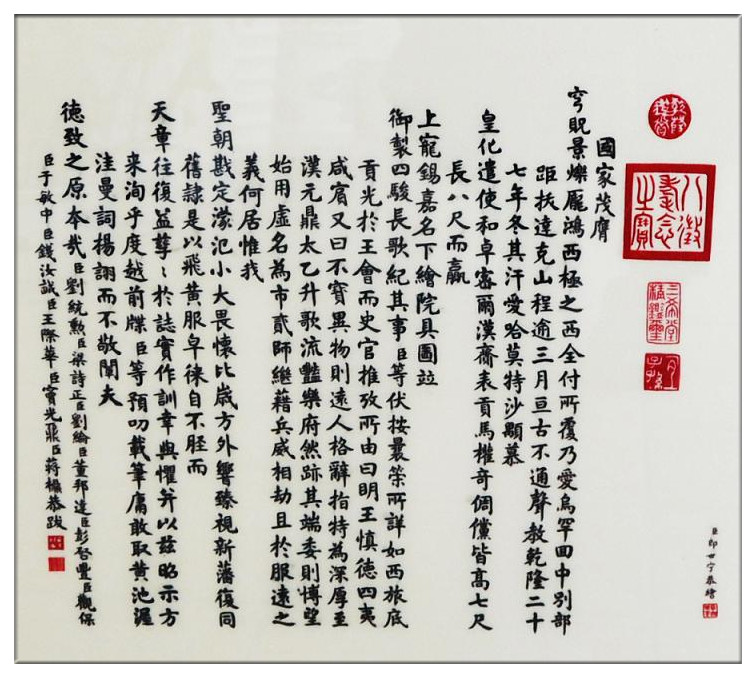 乾隆鑑賞
八徵耄念之寶
三希堂精鑑璽
宜子孫
國家茂膺
穹貺景爍厖鴻西極之西全付所覆乃愛烏罕囬中別部
距拔達克山程逾三月亘古不通聲教乾隆二十
七年冬其汗愛哈莫特沙顯慕
皇化遣使和卓密爾漢齎表貢馬權奇倜儻皆高七尺
長八尺而贏
上寵錫嘉名下繪院具圖竝
御製四駿長歌紀其事臣等伏按曩策所詳如西旅底
貢光於王會而史官推攷所由曰明王慎德四夷
咸賓又曰不寶異物則遠人格辭指特為深厚至
漢元鼎太乙升歌流豔樂府然跡其端委則愽望
始用虛名為市貳師繼藉兵威相劫且於服遠之
義何居惟我
聖朝戡定濛汜小大畏懷比歲方外響臻視新藩復同
舊隸是以飛黃服皁徠自不脛而
天章往復益孳〻於誌實作訓幸與懼并以茲昭示方
来洵乎度越前牒臣等預叨載筆庸敢取黃池渥
洼曼詞揚詡而不敬闡夫
德致之原本哉臣劉統勲臣梁詩正臣劉綸臣董邦達臣彭啓豐臣觀保
臣于敏中臣錢汝誠臣王際華臣竇光鼐臣蔣檙恭跋
臣郎世宁恭繪